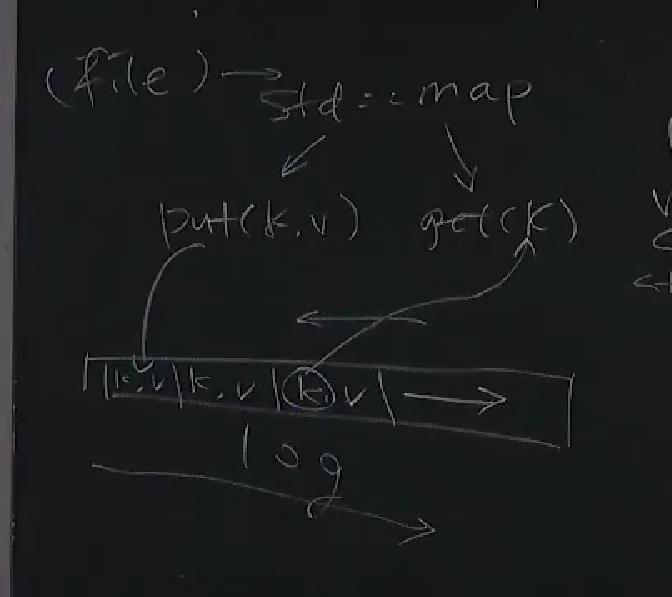 (file) → std::map
put(k,v) get(k)
|k,v|k,v|k,v|
log